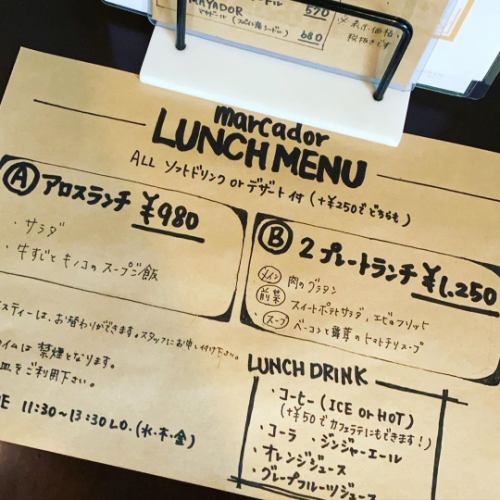 570
MAYADOR
680
marcador
LUNCH MENU
ALL ソフトドリンク or デザート付 (+¥250でどちらも)
Ⓐ アロスランチ ¥980
・サラダ
・牛すじとキノコのスープご飯
Ⓑ 2プレートランチ ¥1,250
メイン 肉のグラタン
前菜 スイートポテトサラダ、エビのフリット
スープ ベーコンと舞茸のトマトチリスープ
スティーは、お替わりができます。スタッフにお申し付け下さい。
イムは 禁煙となります。
皿をご利用下さい。
ME 11:30~13:30 L.O. (水・木・金)
LUNCH DRINK
・コーヒー (ICE or HOT)
(+¥50でカフェラテにもできます!)
・コーラ ・ジンジャーエール
・オレンジジュース
・グレープフルーツジュース